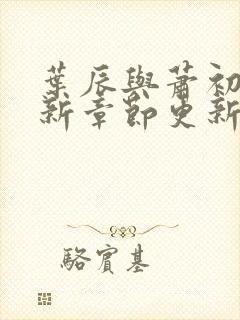 葉辰與蕭初
新章節更新
駱賓基